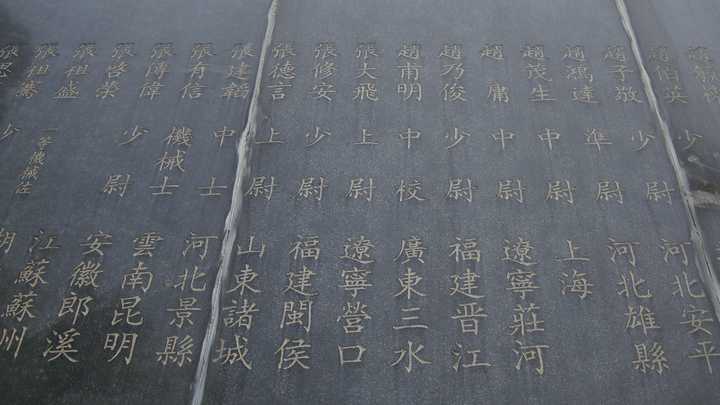 趙伯英 少
趙子敬 少尉 河北安平
趙鴻達 準尉 河北雄縣
趙茂生 中尉 上海
趙庸 中尉 遼寧莊河
趙乃俊 少尉 福建晉江
趙甫明 中校 廣東三水
張大飛 上尉 遼寧營口
張修安 少尉 福建閩侯
張德言 上尉 山東諸城
張建韜 中士 河北景縣
張有信 機械士 雲南昆明
張傳偉 少尉 安徽郎溪
張啓榮 江蘇蘇州
張祖盛 一等機械佐 湖
張祖騫 少
張思